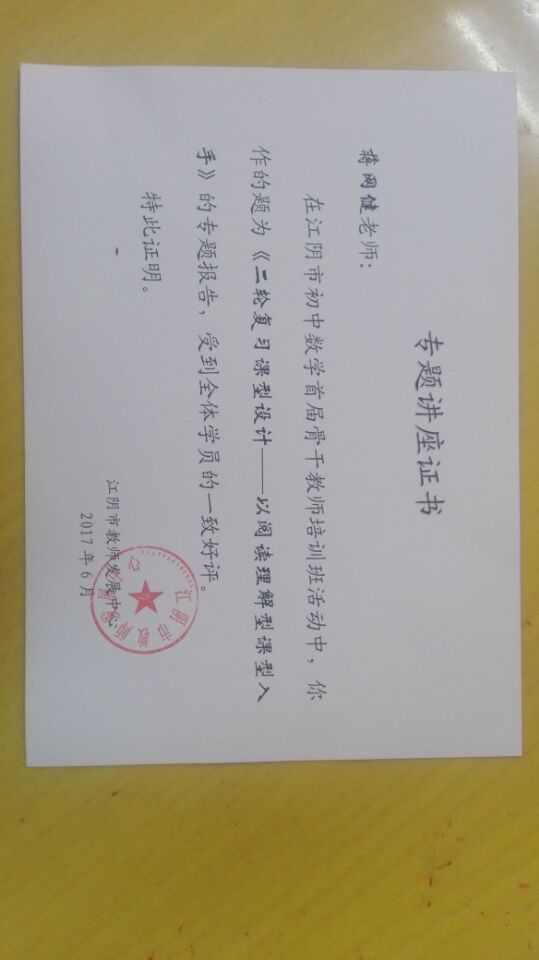 专题讲座证书
蒋网健老师：
在江阴市初中数学首届骨干教师培训班活动中，你
作的题为《二轮复习课型设计——以阅读理解型课型入
手》的专题报告，受到全体学员的一致好评。
特此证明。
江阴市教师发展中心
2017年6月
江阴市教师发展中心